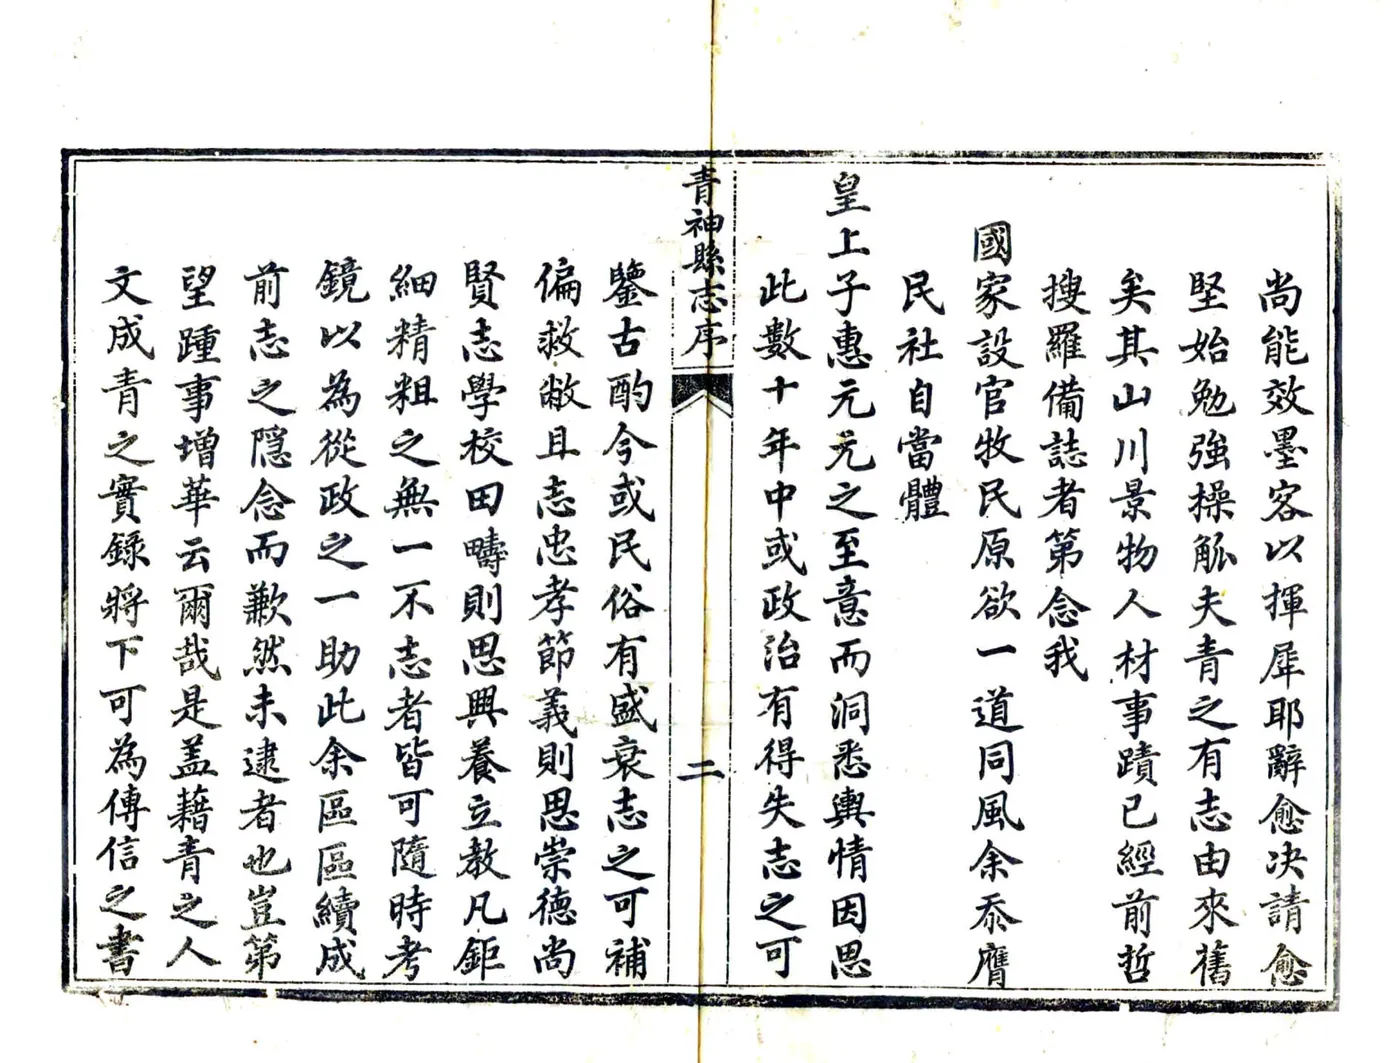 尚能效墨客以揮犀耶辭愈决請愈
堅始勉強操觚夫青之有志由來舊
矣其山川景物人材事蹟已經前哲
搜羅備誌者第念我
國家設官牧民原欲一道同風余忝膺
民社自當體
皇上子惠元元之至意而洞悉輿情因思
此數十年中或政治有得失志之可
青神縣志序
二
鑒古酌今或民俗有盛衰志之可補
偏救敝且志忠孝節義則思崇德尚
賢志學校田疇則思興養立教凡鉅
細精粗之無一不志者皆可隨時考
鏡以為從政之一助此余區區續成
前志之隱念而歉然未逮者也豈第
望踵事增華云爾哉是盖藉青之人
文成青之實錄將下可為傳信之書